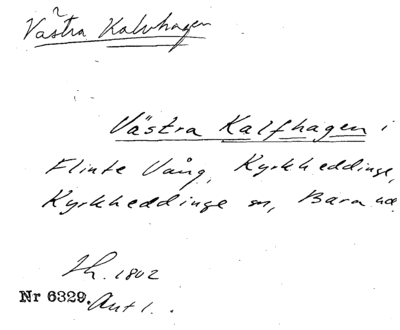 Västra Kalvhagen
Västra Kalfhagen i
Flinte Vång, Kyrkheddinge,
Kyrkheddinge sn, Bara hd.
Sh. 1802
Nr 6329. Akt 1.